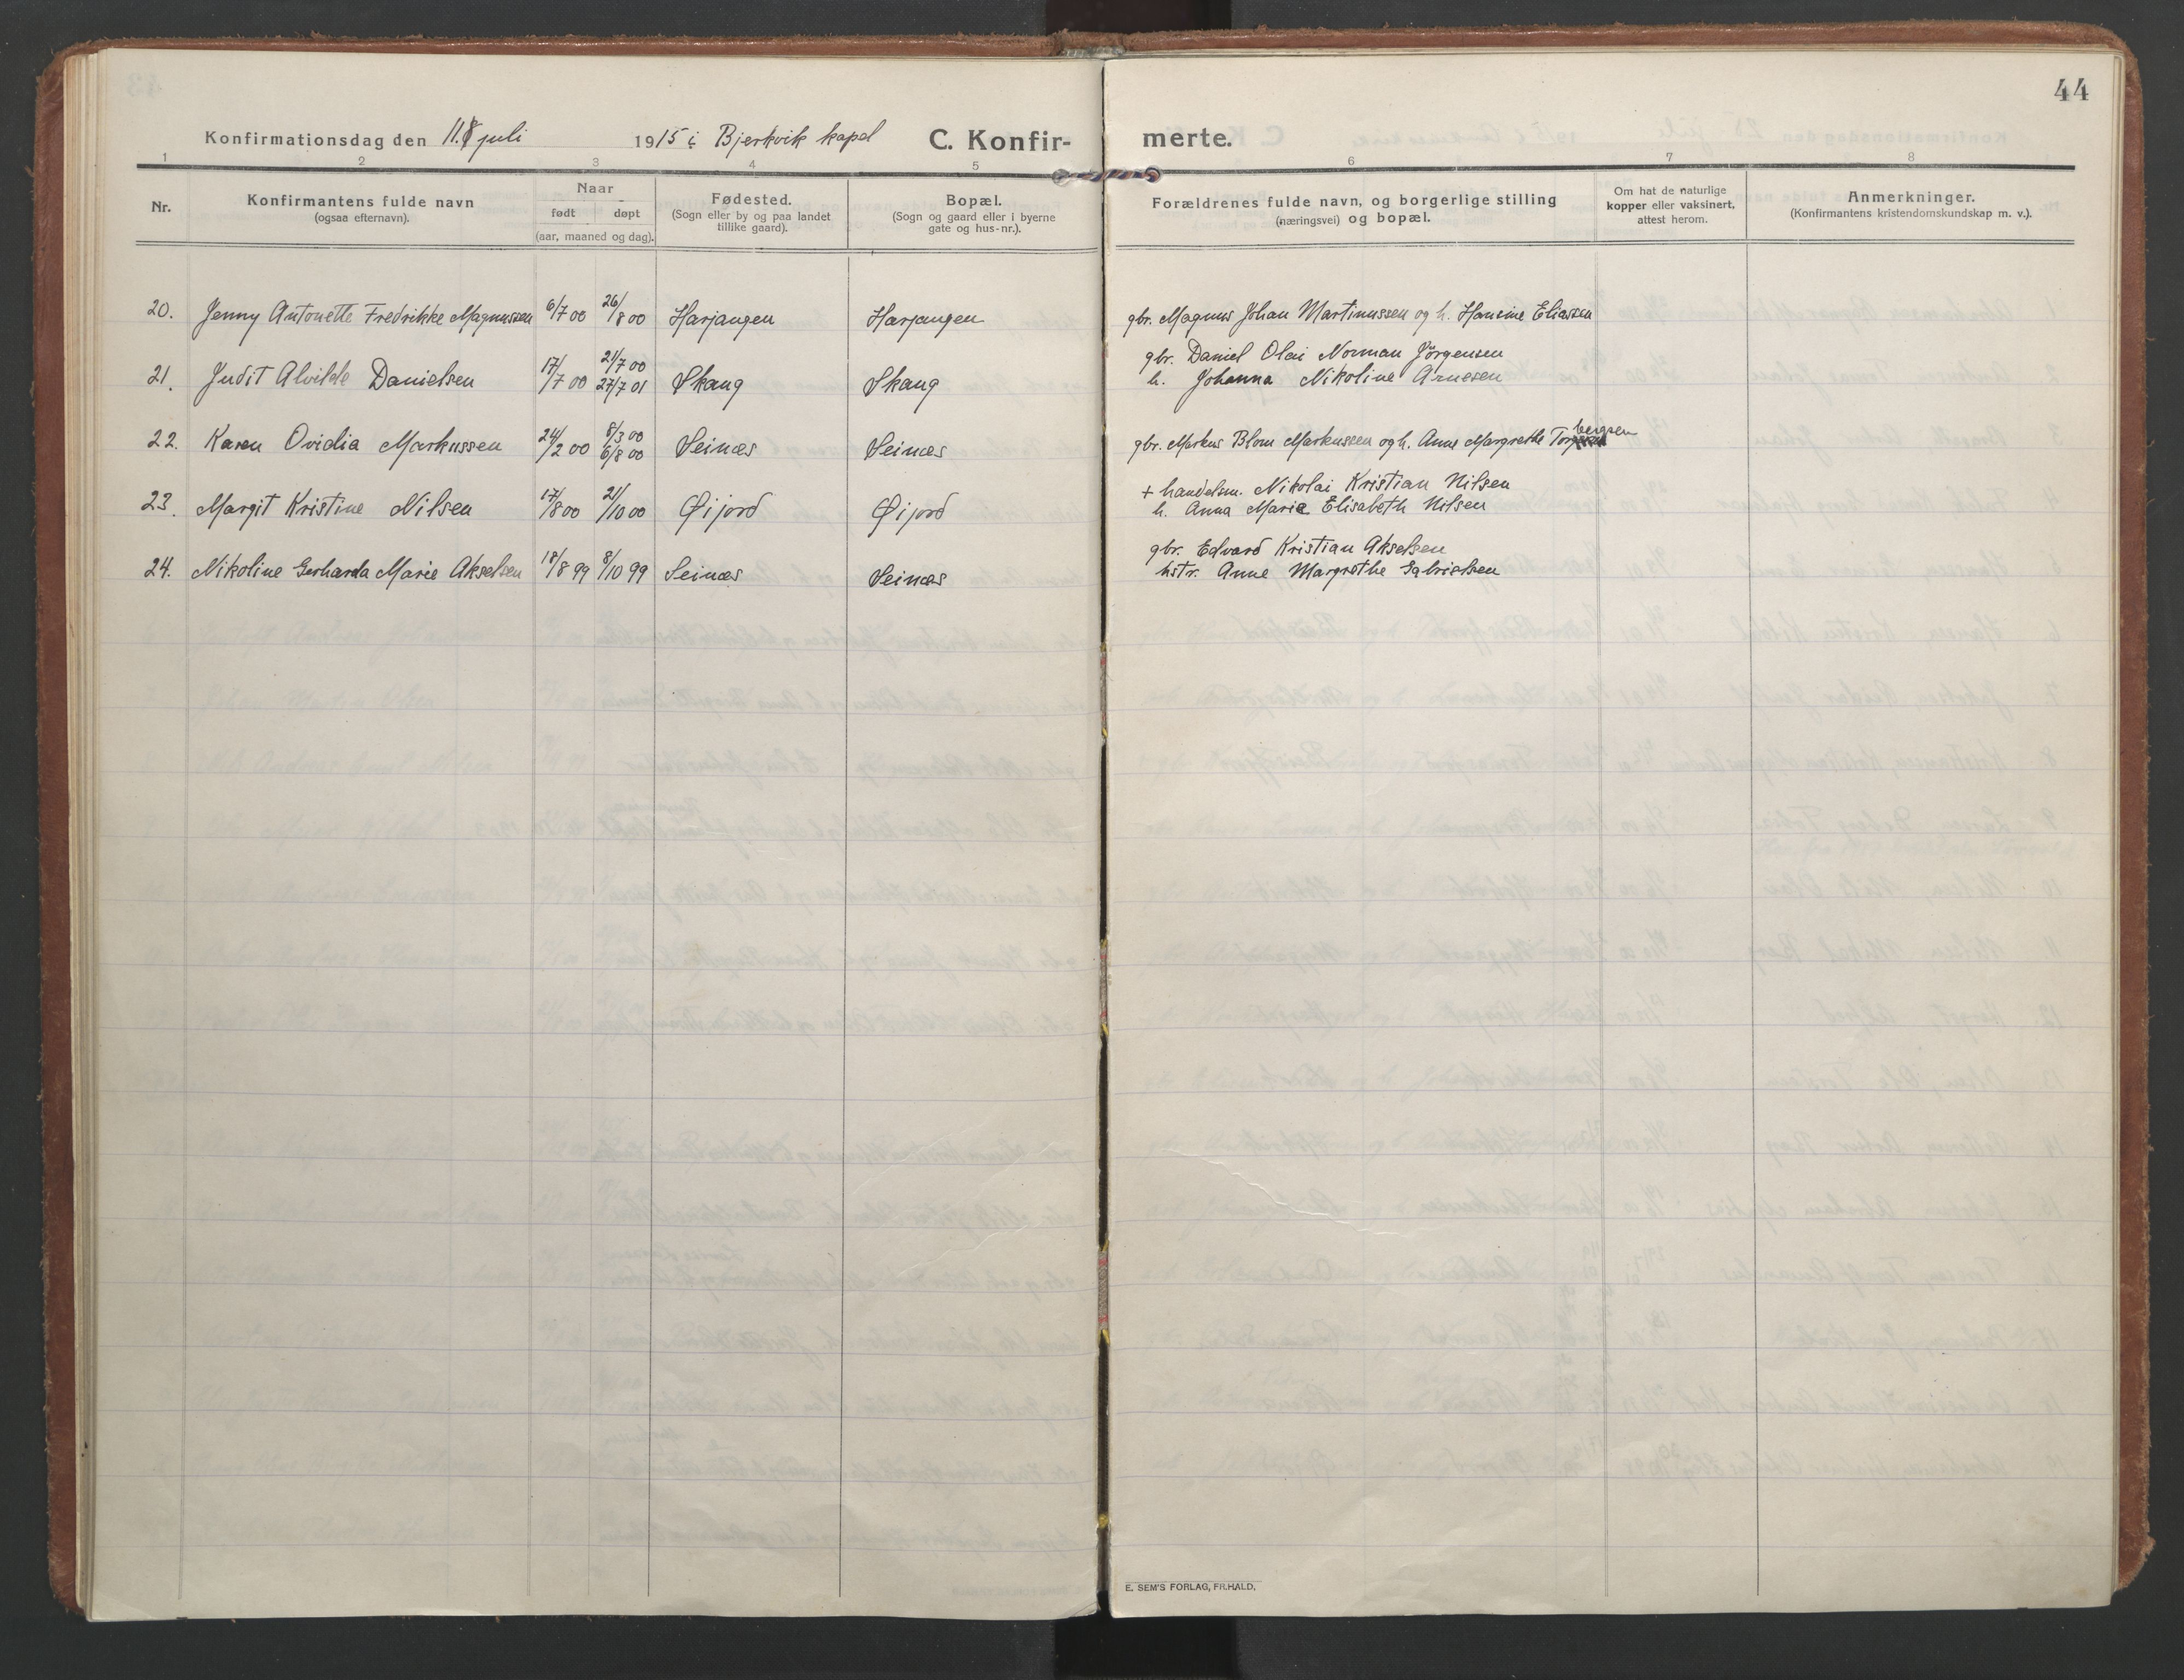 44
Konfirmationsdag den 11. juli 1915 i Bjerkvik kapel C. Konfir- merte.
1 2 3 4 5 6 7 8
Nr.
Konfirmantens fulde navn
(ogsaa efternavn).
Naar
født døpt
(aar, maaned og dag).
Fødested.
(Sogn eller by og paa landet
tillike gaard).
Bopæl.
(Sogn og gaard eller i byerne
gate og hus-nr.).
Forældrenes fulde navn, og borgerlige stilling
(næringsvei) og bopæl.
Om hat de naturlige
kopper eller vaksinert,
attest herom.
Anmerkninger.
(Konfirmantens kristendomskundskap m. v.).
20. Jenny Antonette Fredrikke Magnussen 6/7 00 26/8 00 Harjangen Harjangen gbr. Magnus Johan Martinussen og h. Hansine Eliassen
21. Judit Alvilde Danielsen 17/7 00 21/7 00 27/7 01 Skaug Skaug gbr. Daniel Olai Norman Jörgensen
h. Johanna Nikoline Arnesen
22. Karen Ovidia Markussen 24/2 00 8/3 00 6/8 00 Seines Seines gbr. Markus Blom Markussen og h. Anne Margrethe Torbergsen
23. Margit Kristine Nilsen 17/8 00 21/10 00 Øijord Øijord + handelsm. Nikolai Kristian Nilsen
h. Anna Marie Elisabeth Nilsen
24. Nikoline Gerharda Marie Akselsen 18/8 99 8/10 99 Seines Seines gbr. Edvard Kristian Akselsen
hstr. Anne Margrethe Gabrielsen
E. SEM'S FORLAG, FR.HALD.